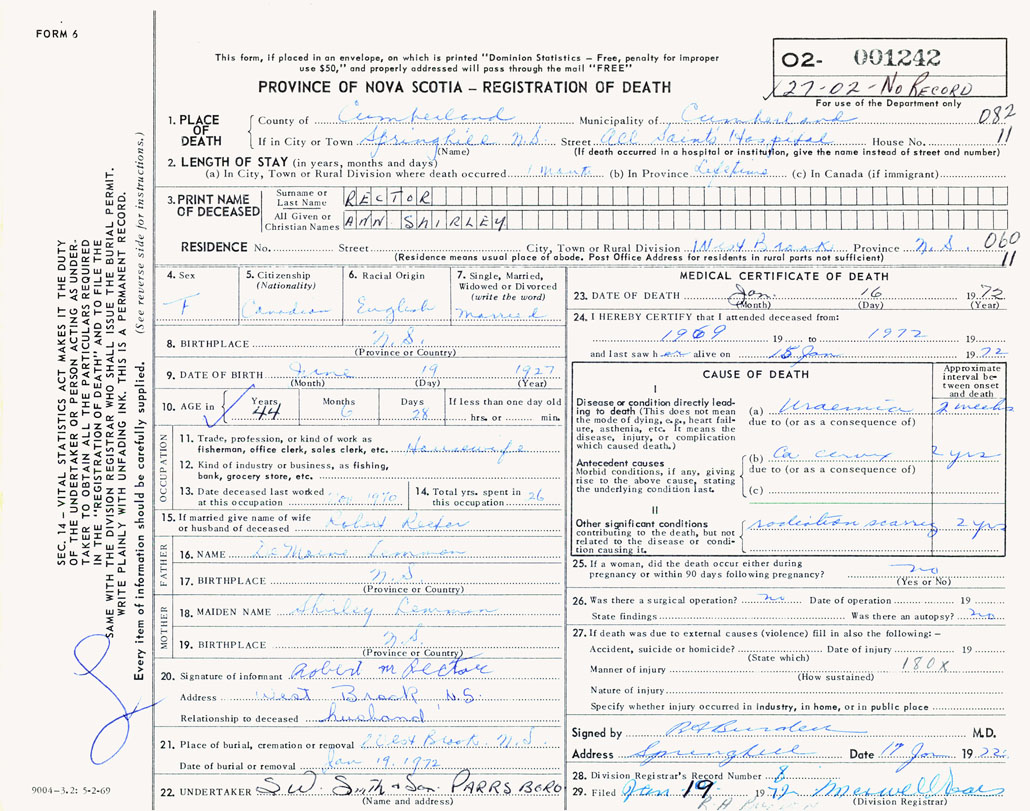 FORM 6
This form, if placed in an envelope, on which is printed "Dominion Statistics – Free, penalty for improper
use $50," and properly addressed will pass through the mail "FREE"
PROVINCE OF NOVA SCOTIA – REGISTRATION OF DEATH
02- 001242
27-02-No Record
For use of the Department only
1. PLACE OF DEATH
County of Cumberland Municipality of Cumberland 082
If in City or Town Springhill N.S. Street All Saints Hospital House No. 11
(Name) (If death occurred in a hospital or institution, give the name instead of street and number)
2. LENGTH OF STAY (in years, months and days)
(a) In City, Town or Rural Division where death occurred 1 Month (b) In Province Lifetime (c) In Canada (if immigrant)
3. PRINT NAME OF DECEASED
Surname or Last Name RECTOR
All Given or Christian Names ANN SHIRLEY
RESIDENCE No. Street City, Town or Rural Division West Brook Province N.S. 060
(Residence means usual place of abode. Post Office Address for residents in rural parts not sufficient) 11
4. Sex F
5. Citizenship (Nationality) Canadian
6. Racial Origin English
7. Single, Married, Widowed or Divorced (write the word) Married
8. BIRTHPLACE N.S.
(Province or Country)
9. DATE OF BIRTH June 19 1927
(Month) (Day) (Year)
10. AGE in Years 44 Months 6 Days 28 If less than one day old hrs. or min.
OCCUPATION
11. Trade, profession, or kind of work as
fisherman, office clerk, sales clerk, etc. Housewife
12. Kind of industry or business, as fishing,
bank, grocery store, etc.
13. Date deceased last worked at this occupation Nov 1970
14. Total yrs. spent in this occupation 26
15. If married give name of wife
or husband of deceased Robert Rector
FATHER
16. NAME
17. BIRTHPLACE N.S.
(Province or Country)
MOTHER
18. MAIDEN NAME Shirley
19. BIRTHPLACE N.S.
(Province or Country)
20. Signature of informant Robert M Rector
Address West Brook N.S.
Relationship to deceased husband
21. Place of burial, cremation or removal West Brook N.S
Date of burial or removal Jan 19, 1972
22. UNDERTAKER S.W. Smith & Son PARRSBORO
(Name and address)
MEDICAL CERTIFICATE OF DEATH
23. DATE OF DEATH Jan. 16 1972
(Month) (Day) (Year)
24. I HEREBY CERTIFY that I attended deceased from:
1969 19 to 1972
and last saw her alive on 15 Jan 1972
CAUSE OF DEATH
Approximate interval between onset and death
I
Disease or condition directly lead-
ing to death (This does not mean
the mode of dying, e.g., heart fail-
ure, asthenia, etc. It means the
disease, injury, or complication
which caused death.)
(a) Uraemia 2 weeks
due to (or as a consequence of)
Antecedent causes
Morbid conditions, if any, giving
rise to the above cause, stating
the underlying condition last.
(b) Ca cervix 2 yrs
due to (or as a consequence of)
(c)
II
Other significant conditions
contributing to the death, but not
related to the disease or condi-
tion causing it.
radiation scarring 2 yrs
25. If a woman, did the death occur either during
pregnancy or within 90 days following pregnancy? no
(Yes or No)
26. Was there a surgical operation? no Date of operation 19
State findings Was there an autopsy? no
27. If death was due to external causes (violence) fill in also the following: –
Accident, suicide or homicide? Date of injury 19
(State which)
Manner of injury 180X
(How sustained)
Nature of injury
Specify whether injury occurred in industry, in home, or in public place
Signed by M.D.
Address Springhill Date 17 Jan 1972
28. Division Registrar's Record Number 8
29. Filed Jan. 19 1972
(Division Registrar)
SEC. 14 – VITAL STATISTICS ACT MAKES IT THE DUTY
OF THE UNDERTAKER OR PERSON ACTING AS UNDER-
TAKER TO OBTAIN ALL THE PARTICULARS REQUIRED
IN THE "REGISTRATION OF DEATH" AND TO FILE THE
SAME WITH THE DIVISION REGISTRAR WHO SHALL ISSUE THE BURIAL PERMIT.
WRITE PLAINLY WITH UNFADING INK. THIS IS A PERMANENT RECORD.
Every item of information should be carefully supplied. (See reverse side for instructions.)
9004-3.2: 5-2-69